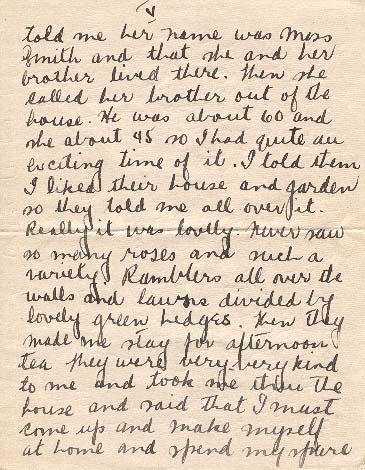 V
told me her name was Mess
Smith and that she and her
brother lived there. Then she
called her brother out of the
house. He was about 60 and
she about 45 so I had quite an
exciting time of it. I told them
I liked their house and garden
so they told me all over it.
Really it was lovely. never saw
so many roses and such a
variety. Ramblers all over the
walls and lawns divided by
lovely green hedges. Then they
made me stay for afternoon
tea they were very very kind
to me and took me the
house and said that I must
come up and make myself
at home and spend my spare